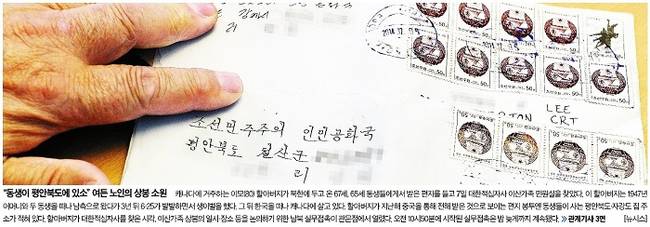 리
조선민주주의 인민공화국
평안북도
리
LEE
CRT
"동생이 평안북도에 있소" 여든 노인의 상봉 소원 캐나다에 거주하는 이모(80) 할아버지가 북한에 두고 온 67세, 65세 동생들에게서 받은 편지를 들고 7일 대한적십자사 이산가족 민원실을 찾았다. 이 할아버지는 1947년
어머니와 두 동생을 떠나 남쪽으로 왔다가 3년 뒤 6·25가 발발하면서 생이별을 했다. 그 뒤 한국을 떠나 캐나다에 살고 있다. 할아버지가 지난해 중국을 통해 전해 받은 것으로 보이는 편지 봉투엔 동생들이 사는 평안북도·자강도 집 주
소가 적혀 있다. 할아버지가 대한적십자사를 찾은 시각, 이산가족 상봉의 일시·장소 등을 논의하기 위한 남북 실무접촉이 판문점에서 열렸다. 오전 10시50분에 시작된 실무접촉은 밤 늦게까지 계속됐다. ≫관계기사 3면 [뉴시스]